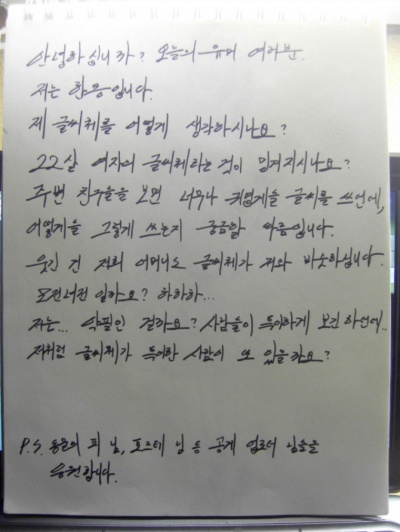 안녕하십니까? 오늘의 유머 여러분.
저는 입니다.
제 글씨체를 어떻게 생각하시나요?
22살 여자의 글씨체라는 것이 믿겨지시나요?
주변 친구들을 보면 너무나 귀엽게들 글씨를 쓰던데,
어떻게들 그렇게 쓰는지 궁금할 따름입니다.
웃긴 건 저희 어머니도 글씨체가 저와 비슷하십니다.
모전녀전 일까요? 하하하...
저는... 악필인 걸까요? 사람들이 특이하게 보긴 하던데..
저처럼 글씨체가 특이한 사람이 또 있을까요?
P.S. 용문의 피 님, 포스테 님 등 공게 업로더 님들을
응원합니다.